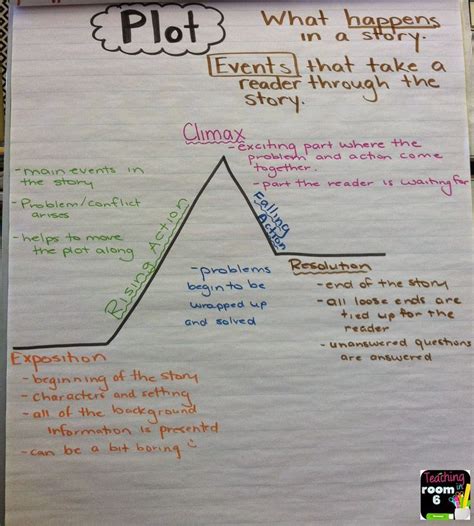 Plot
What happens
in a story.
Events that take a
reader through the
story.
Climax
- exciting part where the
problem and action come
together.
- part the reader is waiting for
- main events in
the story
- Problem/conflict
arises
- helps to move
the plot along
Rising Action
Falling
Action
- problems
begin to be
wrapped up
and solved
Resolution
- end of the story
- all loose ends are
tied up for the
reader
- unanswered questions
are answered
Exposition
- beginning of the story
- characters and setting
- all of the background
information is presented
- can be a bit boring
Teaching
in
room
6